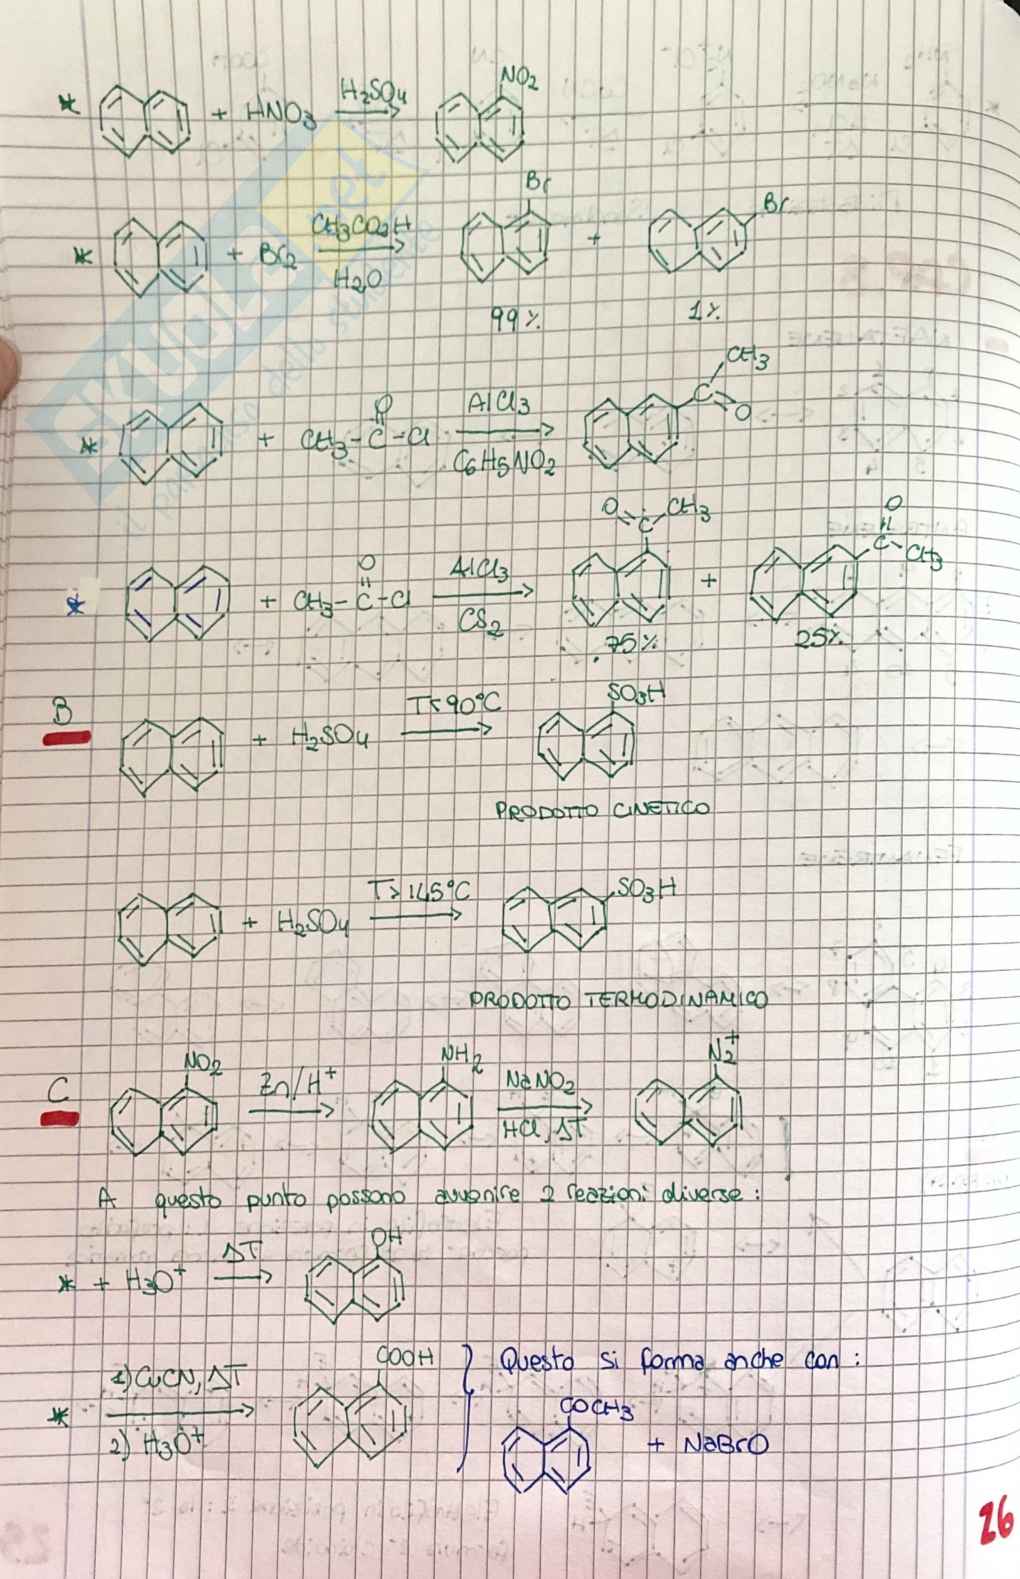 * + HNO3 H2SO4 NO2
* + Br2 CH3CO2H H2O Br + Br
99% 1%
* + CH3-C-Cl O AlCl3 C6H5NO2 C CH3 O
* + CH3-C-Cl O AlCl3 CS2 O C CH3 + O C CH3
75% 25%
B + H2SO4 T<90°C SO3H
PRODOTTO CINETICO
+ H2SO4 T>145°C SO3H
PRODOTTO TERMODINAMICO
C NO2 Zn/H+ NH2 NaNO2 HCl, ΔT N2+
A questo punto possono avvenire 2 reazioni diverse:
* + H3O+ ΔT OH
* 1) CuCN, ΔT 2) H3O+ COOH } Questo si forma anche con:
COCH3 + NaBrO
26
EKUOLO.net